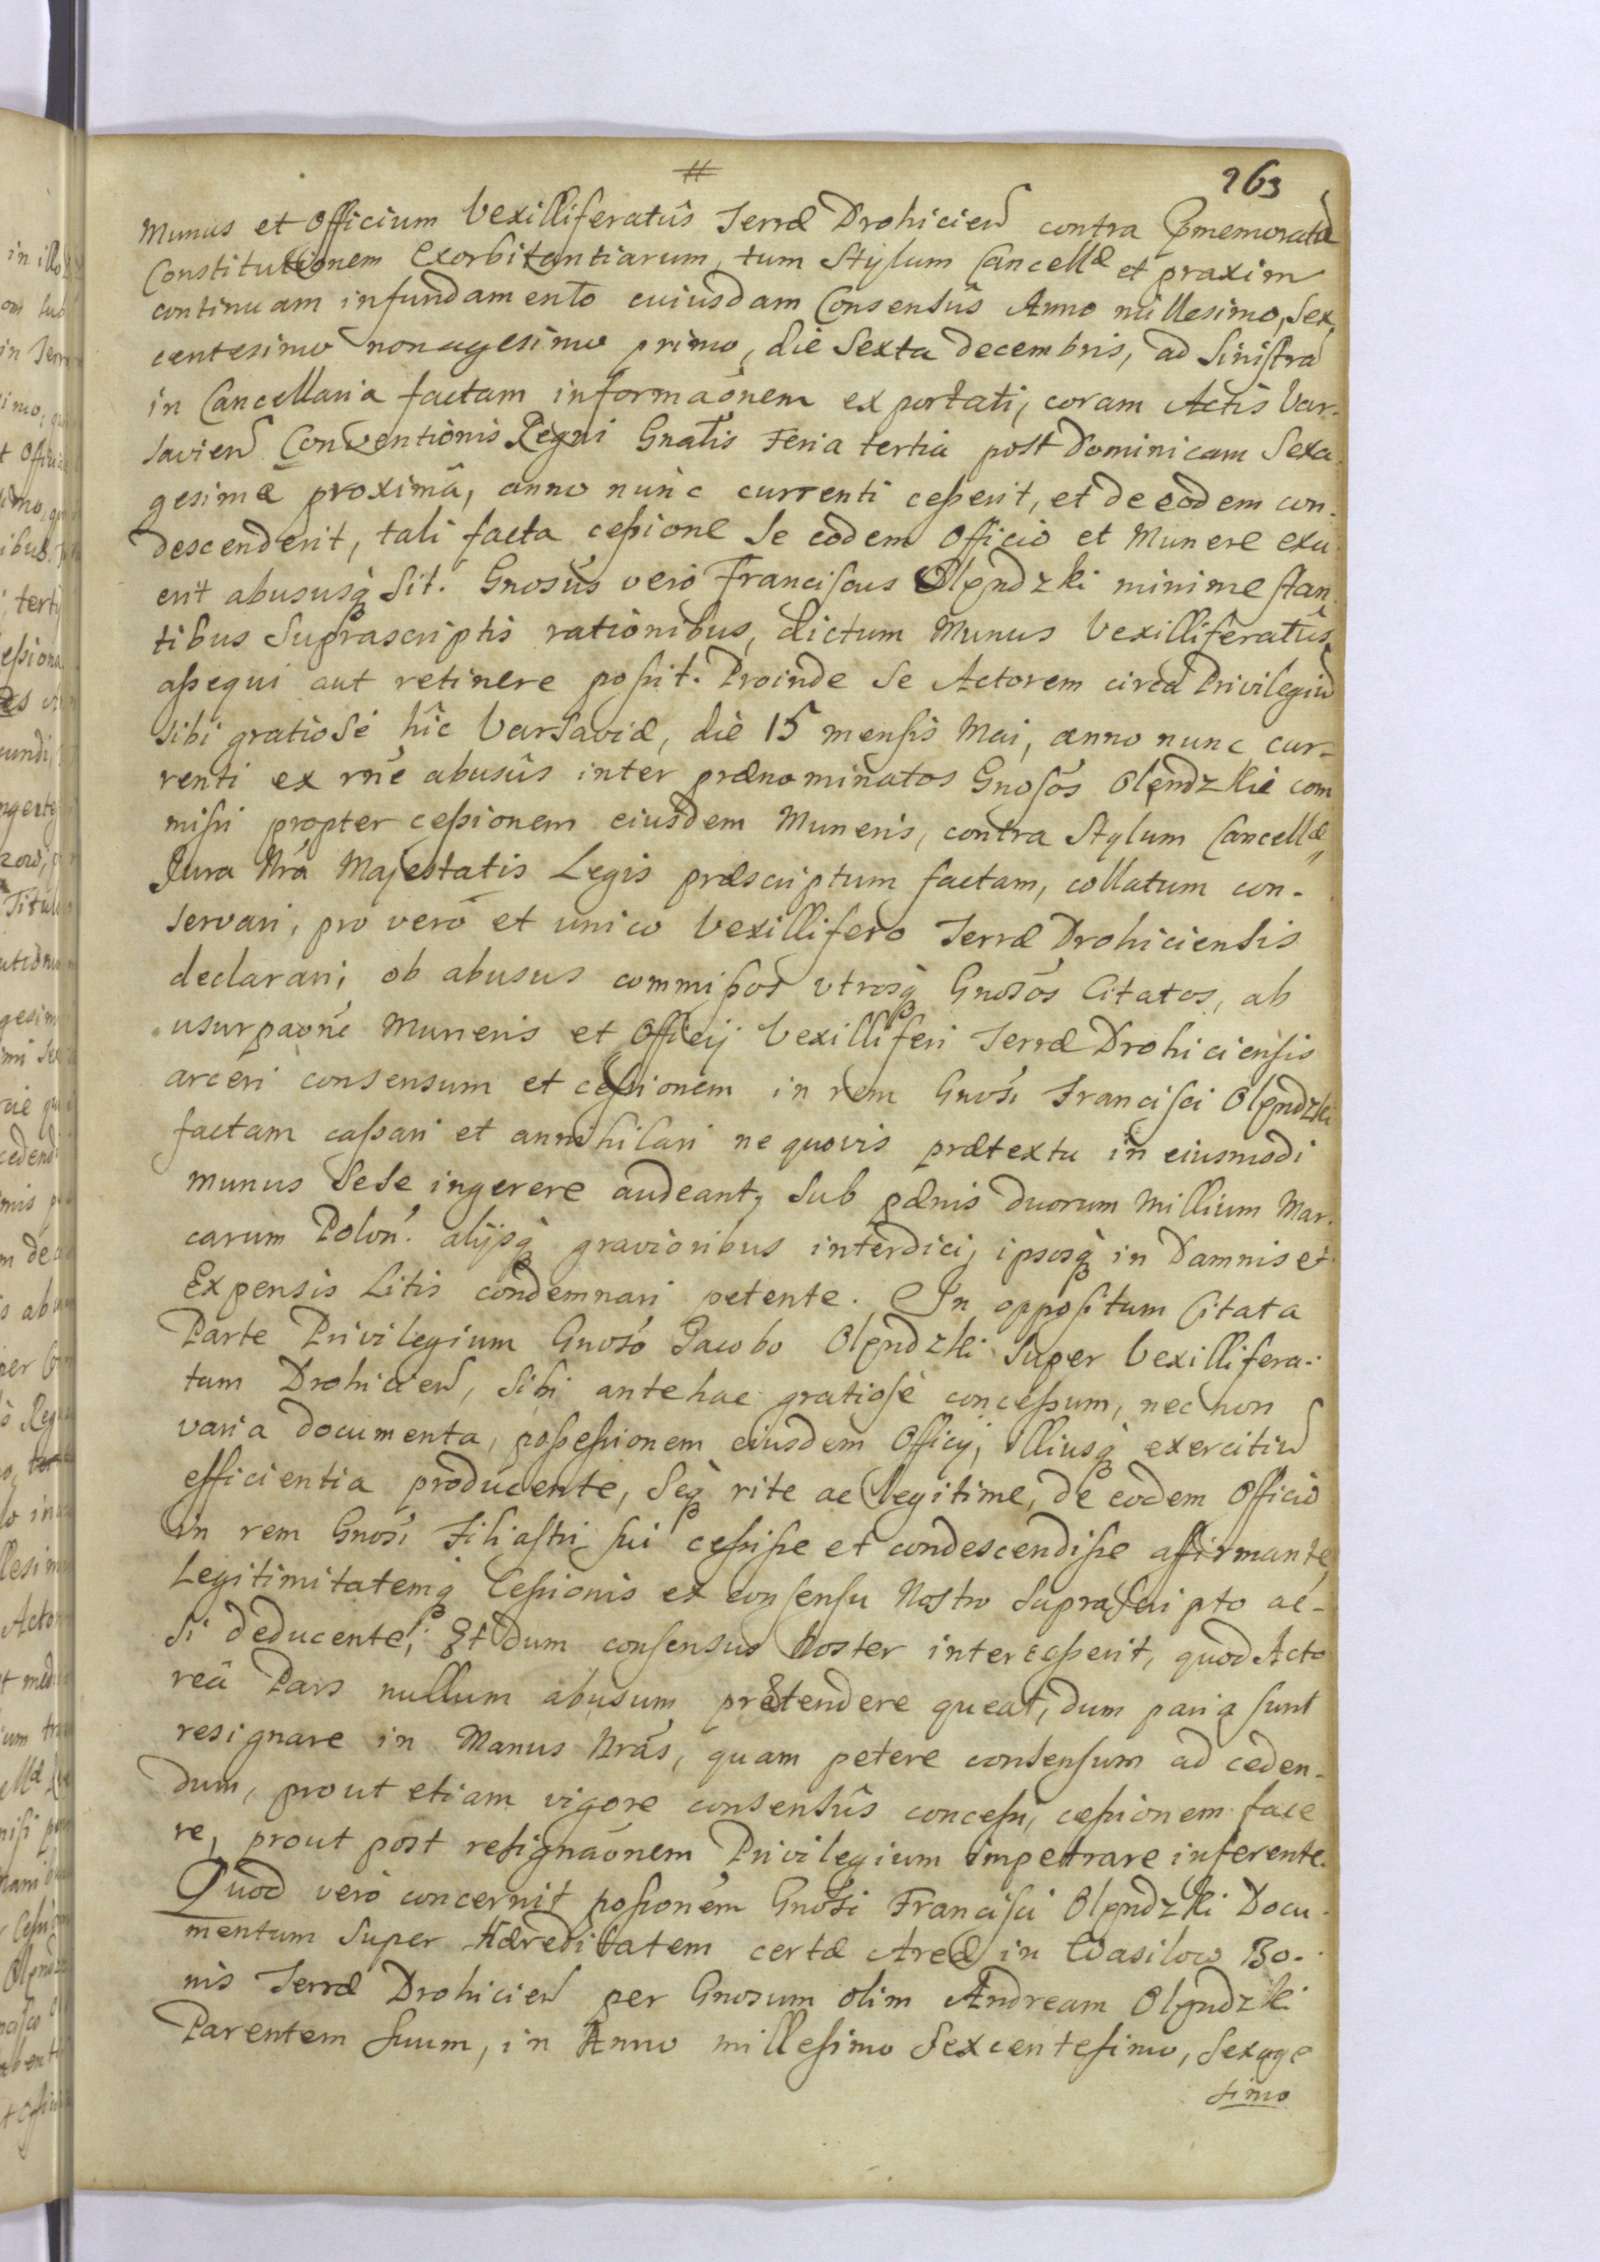 263
Munus et Officium Vexilliferatûs Terræ Drohicien contra Pmemoratã
Constitutionem Exorbitantiarum, tum Stylum Cancellæ et praxim
continuam in fundamento cuiusdam Consensûs Anno millesimo, Sex,
centesimo nonagesimo primo, die Sexta decembris, ad Sinistrã
in Cancellaria factam informaõnem exportati, coram Actis Var-
savien Conventionis Regni Gnalis Feria tertia post Dominicam Sexa
gesimæ proximâ, anno nunc currenti cesserit, et de eodem con-
descenderit, tali facta cessione Se eodem Officio et Munere exu
erit abususq Sit. Gnosus vero Franciscus Olędzki minime stan
tibus Suprascriptis rationibus, dictum Munus Vexilliferatûs
assequi aut retinere possit. Proinde Se Actorem circa Privilegiũ
Sibi gratiose hîc Varsaviæ, die 15 mensis Maij, anno nunc cur-
renti ex rne abusûs inter prænominatos Gnosos Olędzkie com
missi propter cessionem eiusdem Muneris, contra Stylum Cancellæ
Jura Nra Majestatis Legis præscriptum factam, collatum con-
servari, pro vero et unico Vexillifero Terræ Drohiciensis
declarari, ob abusus commissos utrosq Gnosos Citatos, ab
usurpaone Muneris et Officij Vexilliferi Terræ Drohiciensis
arceri consensum et cessionem in rem Gnosi Francisci Olędzki
factam cassari et annihilari ne quovis prætextu in eiusmodi
munus Sese ingerere audeant, Sub pænis duorum millium Mar-
carum Polon. alijsq gravioribus interdici, ipsosq in Damnis et
Expensis Litis condemnari petente. In oppositum Citata
Parte Privilegium Gnoso Jacobo Olędzki Super Vexillifera-
tum Drohicien, Sibi antehac gratiose concessum, nec non
varia documenta, possessionem eiusdem Officij, illiusq exercitiũ
efficientia producente, Seq rite ac legitime, de eodem Officio
in rem Gnosi Filiastri sui cessisse et condescendisse affirmante,
Legitimitatemq Cessionis ex consensu Nostro Suprascripto ac-
Si deducente; Et dum consensus Noster intercesserit, quod Acto
reâ Pars nullum abusum prætendere queat, dum paria sunt
resignare in Manus Nras, quam petere consensum ad ceden-
dum, prout etiam vigore consensûs concessi, cessionem face
re, prout post resignaõnem Privilegium impetrare inferente.
Quod vero concernit possionem Gnosi Francisci Olędzki Docu-
mentum Super Hæreditatem certæ Areæ in Wasilow Bo-
nis Terræ Drohicien per Gnosum olim Andream Olędzki
Parentem Suum, in Anno millesimo Sexcentesimo, Sexage
simo